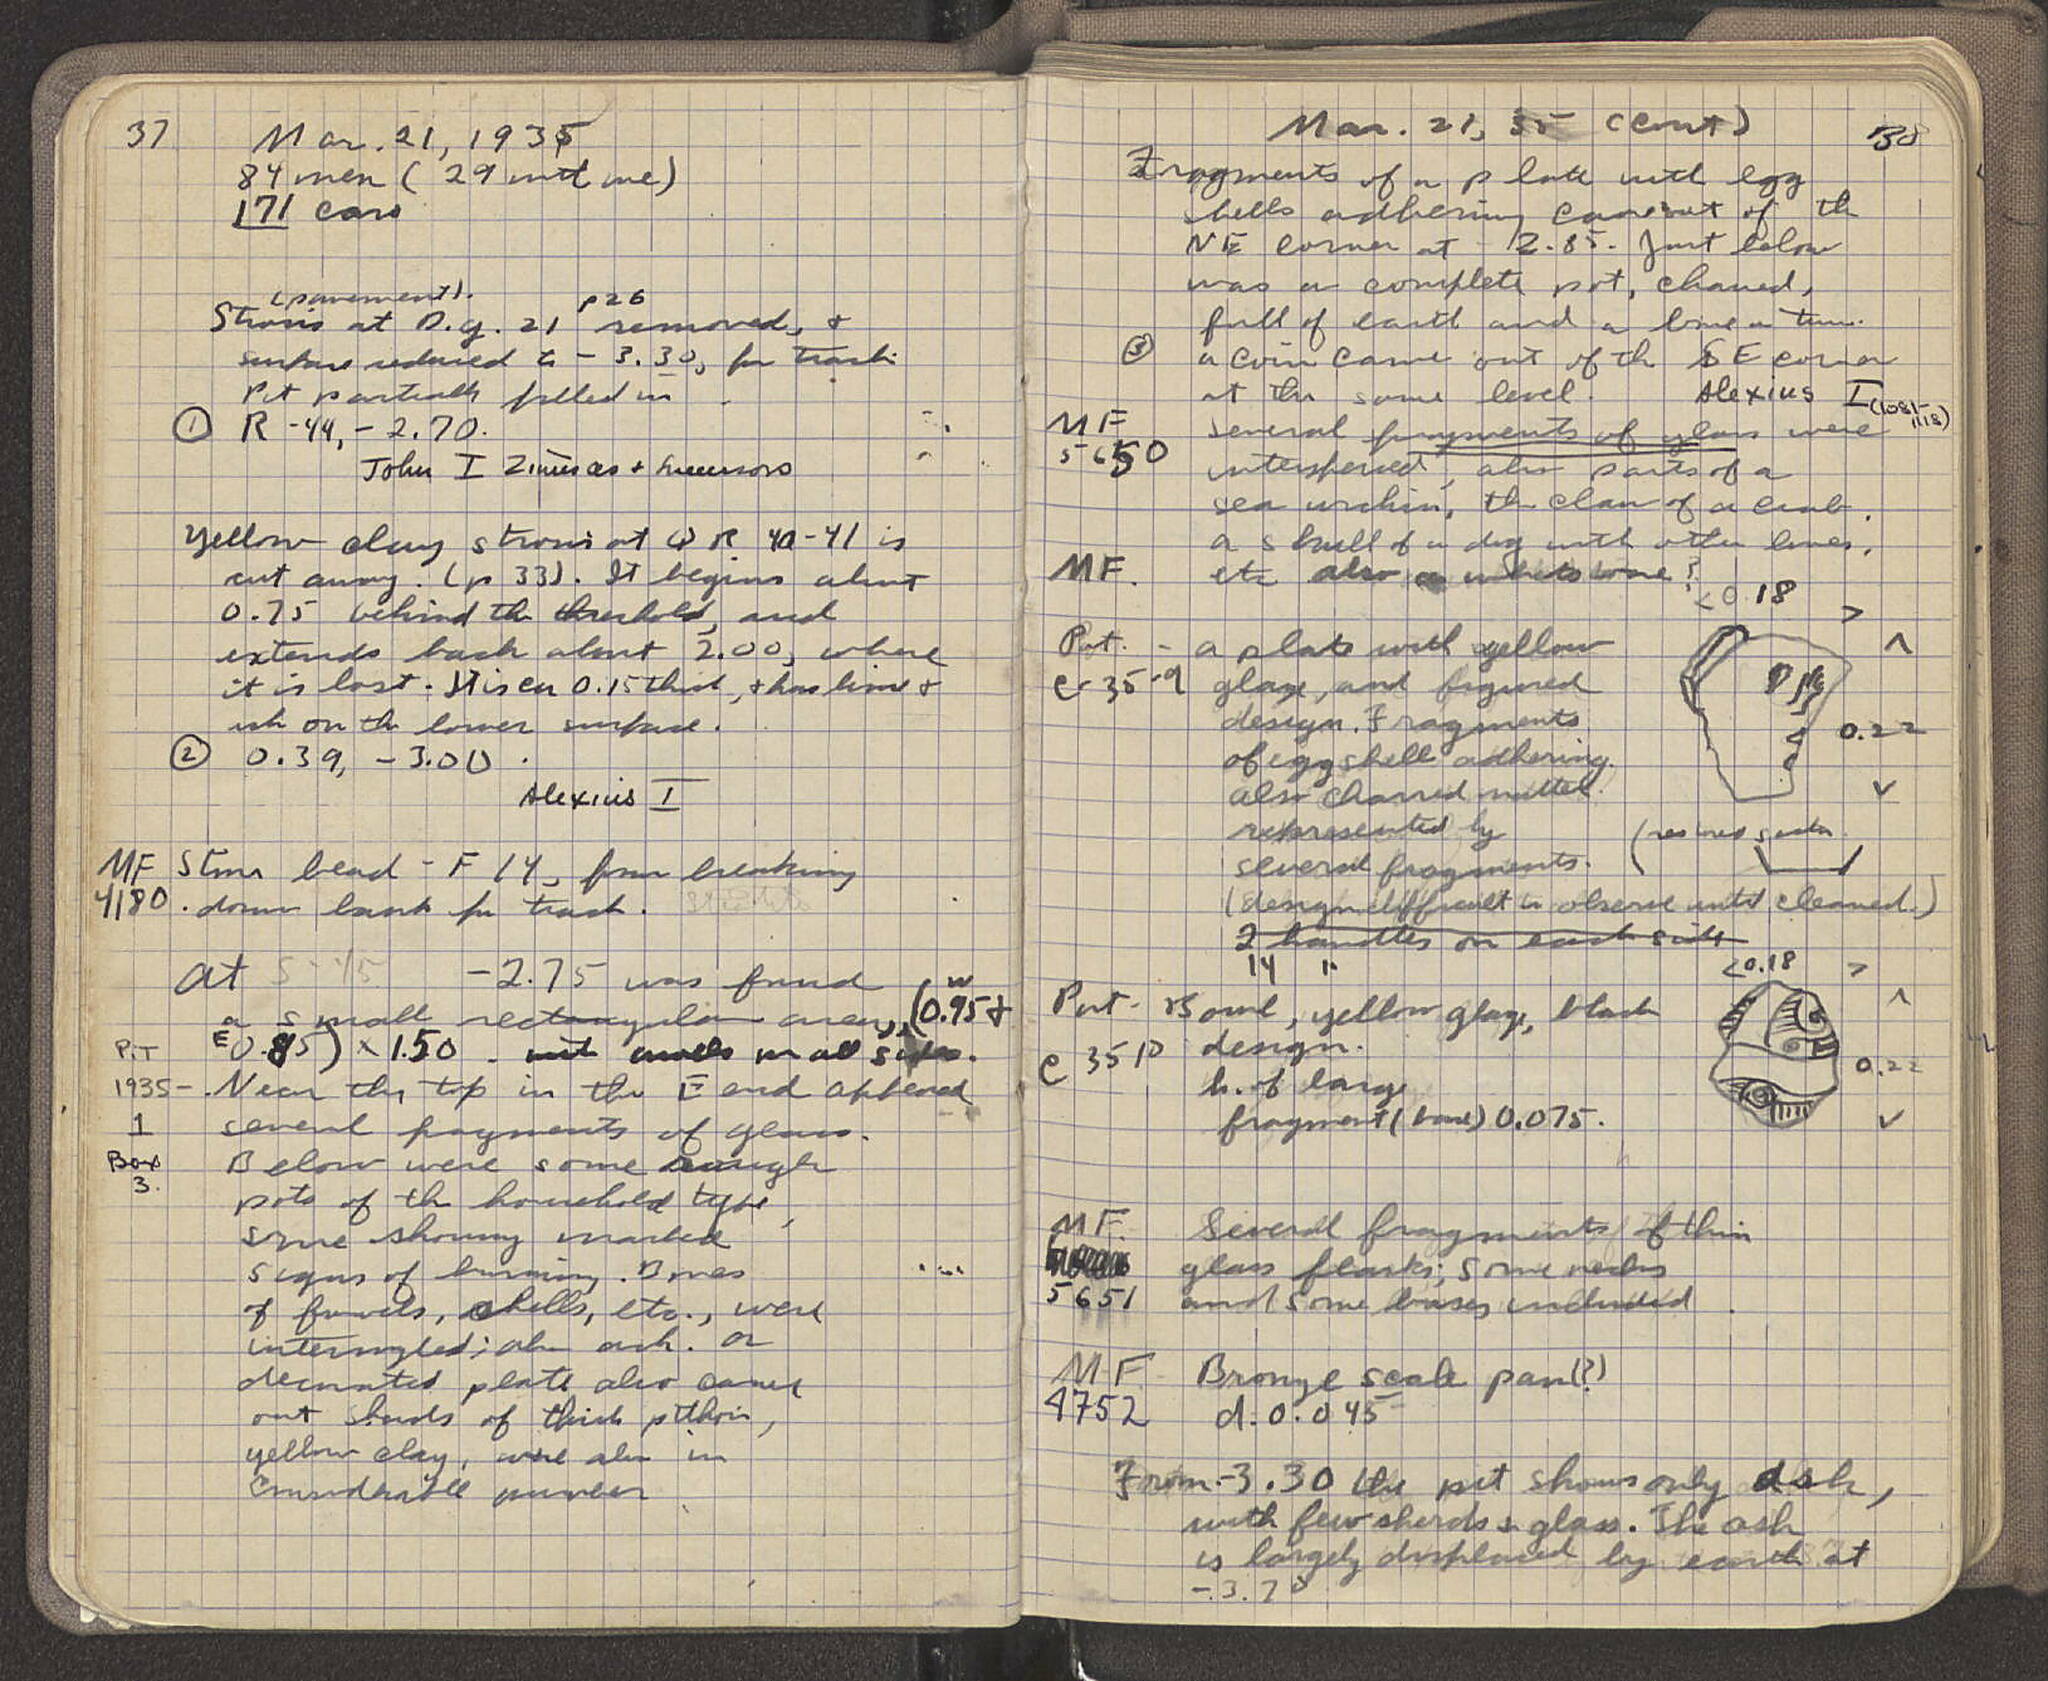 37
Mar. 21, 1935
84 men (29 with me)
171 cars
(pavement). p26
Strosis at D.g. 21 removed, &
surface reduced to - 3.30, for track.
Pit partially filled in
① R -44, - 2.70.
John I Zimisces + Successors
Yellow clay strosis at Q R 40-41 is
cut away. (p 33). It begins about
0.75 behind the threshold, and
extends back about 2.00, where
it is lost. It is ca 0.15 thick, & has lime &
ash on the lower surface.
② 0.39, -3.00.
Alexius I
MF Stone bead - F 14, from breaking
4180. down bank for track.
At S-45 -2.75 was found
a small rectangular area, (W 0.95 &
E 0.85) x 1.50 . with walls on all sides.
Pit
1935- Near the top in the E end appeared
1 several fragments of glass.
Box Below were some rough
3. pots of the household type,
some showing marked
signs of burning. Bones
of fowels, shells, etc., were
intermingled; also ash. a
decorated plate also came
out sherds of thick pithoi,
yellow clay, were also in
Considerable number
Mar. 21, 35 (cont) 38
Fragments of a plate with egg
shells adhering came out of the
NE corner at - 2.85. Just below
was a complete pot, charred,
full of earth and a bone or two.
③ a coin came out of the SE corner
at the same level. Alexius I (1081-1118)
MF Several fragments of glass were
5650 interspersed, also parts of a
sea urchin, the claw of a crab,
a skull of a dog with other bones,
MF. etc also a whets bone?
<0.18>
Pot. - a plate with yellow
c- 35-9 glaze, and figured
design. Fragments
of eggshell adhering.
0.22
also charred matter.
represented by
several fragments. (restored
(design difficult to observe until cleaned.)
2 handles on each side
14 "
<0.18>
Pot - Bowl, yellow glaze, black
c 35 10 design.
h. of large
fragment (base) 0.075.
0.22
MF. Several fragments of thin
glass flasks; some necks
5651 and some bases included.
MF Bronze scale pan(?)
4752 d. 0.045
From -3.30 the pit shows only ash,
with few sherds & glass. The ash
is largely displaced by earth at
-3.70